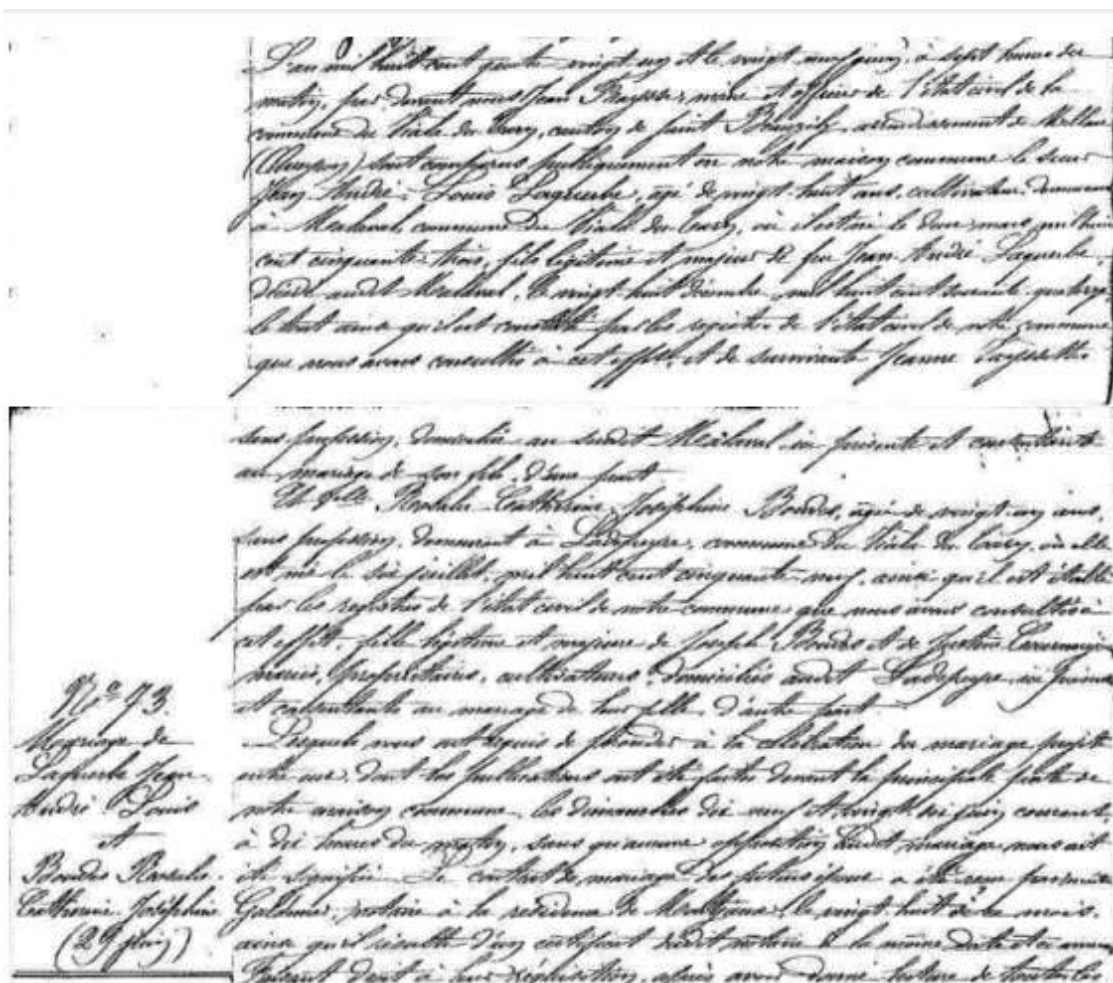 L'an mil huit cent quatre vingt un et le vingt neuf juin, à sept heures du
matin, par devant nous Jean Fraysse, maire et officier de l'état civil de la
commune du Viala du Tarn, canton de Saint Beauzély, arrondissement de Millau
(Aveyron) sont comparus publiquement en notre maison commune le sieur
Jean André Louis Laquerbe, agé de vingt huit ans, cultivateur demeurant
à Mealaval, commune du Viala du Tarn, où il est né le douze mars mil huit
cent cinquante trois, fils légitime et majeur de feu Jean André Laquerbe,
décédé audit Mealaval, le vingt huit décembre mil huit cent soixante quatorze
le tout ainsi qu'il est constaté par les registres de l'état civil de notre commune
que nous avons consultés à cet effet, et de survivante Jeanne
sans profession, domiciliée au susdit Mealaval ici présente et consentante
au mariage de son fils, d'une part
Et Delle Rosalie Catherine Joséphine Boudes, agée de vingt un ans,
sans profession, demeurant à Ladepeyre, commune du Viala du Tarn, où elle
est née le six juillet, mil huit cent cinquante neuf, ainsi qu'il est établi
par les registres de l'état civil de notre commune que nous avons consultés à
cet effet, fille légitime et majeure de Joseph Boudes et de Justine
mariés, propriétaires, cultivateurs, domiciliés audit Ladepeyre, ici présents
et consentants au mariage de leur fille, d'autre part.
Lesquels nous ont requis de procéder à la célébration du mariage projeté
entre eux, dont les publications ont été faites devant la principale porte de
notre maison commune les dimanches dix neuf et vingt six juin courant,
à dix heures du matin, sans qu'aucune opposition audit mariage nous ait
été signifiée. Le contrat de mariage des futurs époux a été reçu par maître
Galdemar, notaire à la résidence de le vingt huit de ce mois,
ainsi qu'il résulte d'un certificat dudit notaire à la même date et ci annexé
Faisant droit à leur réquisition, après avoir donné lecture de toutes les
No 73.
Mariage de
Laquerbe Jean
André Louis
et
Boudes Rosalie
Catherine Joséphine
(29 juin)